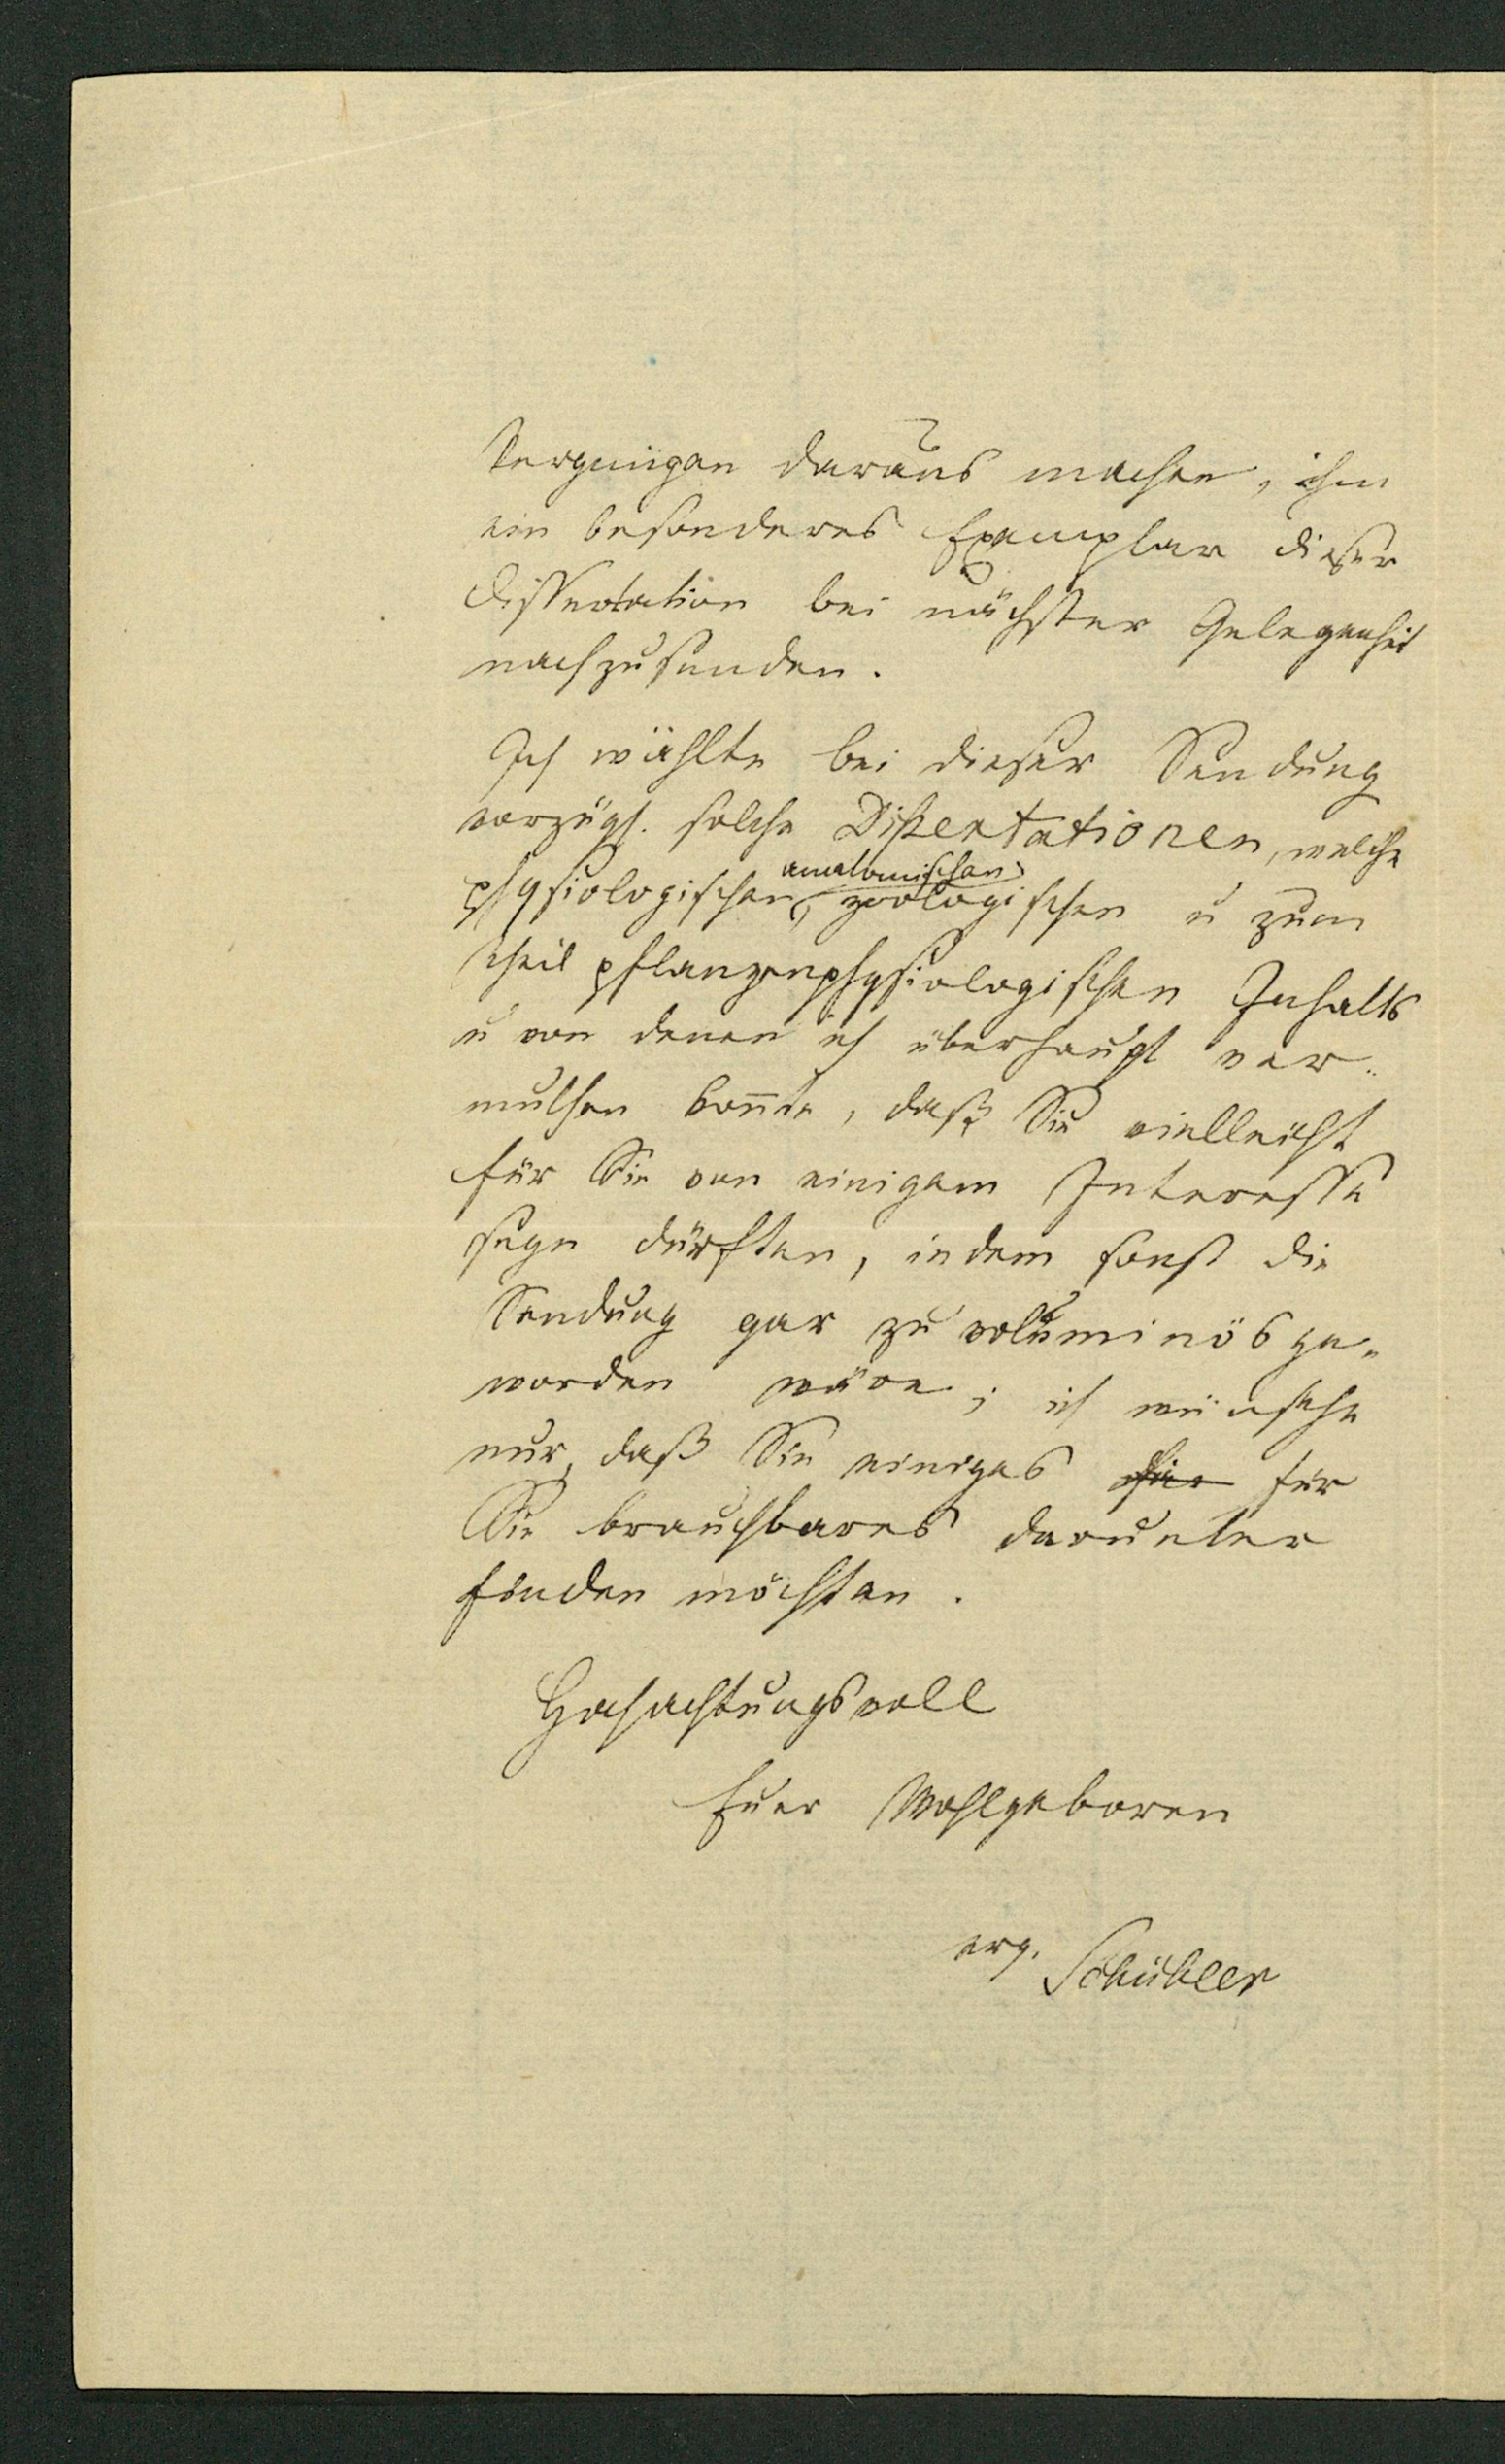 Vergnügen daraus machen, ihm
ein besonderes Exemplar dieser
Dissertation bei nächster Gelegenheit
nachzusenden.
Ich wählte bei dieser Sendung
vorzügl. solche Dissertationen, welche
anatomischen
physiologischen, zoologischen u zum
theil pflanzenphysiologischen Inhalts
u von denen ich überhaupt ver-
muthen konnte, daß Sie vielleicht
für Sie von einigem Interesse
seyn dürften, indem sonst die
Sendung gar zu voluminös ge-
worden wäre; ich wünsche
nur, daß Sie einiges für
Sie brauchbares darunter
finden möchten.
Hochachtungsvoll
Euer Wohlgeboren
erg. Schübler